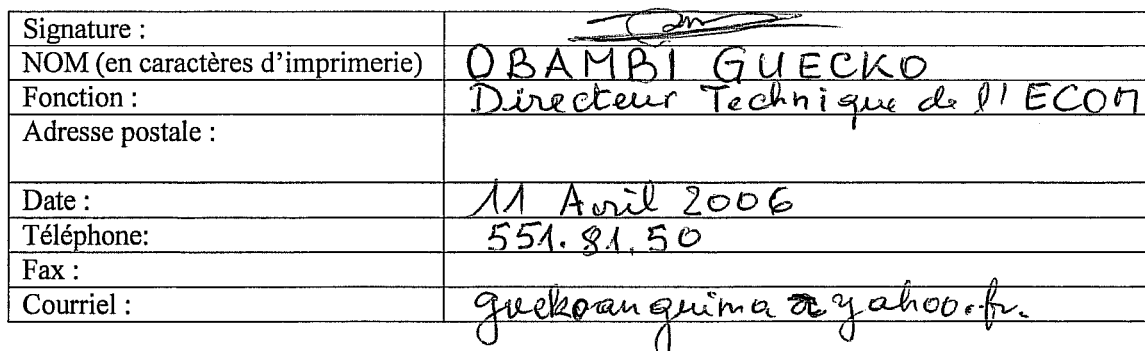 Signature :
NOM (en caractères d'imprimerie) OBAMBI GUECKO
Fonction : Directeur Technique de l'ECOM
Adresse postale :
Date : 11 Avril 2006
Téléphone: 551.81.50
Fax :
Courriel : gueckoanguima @ yahoo.fr.